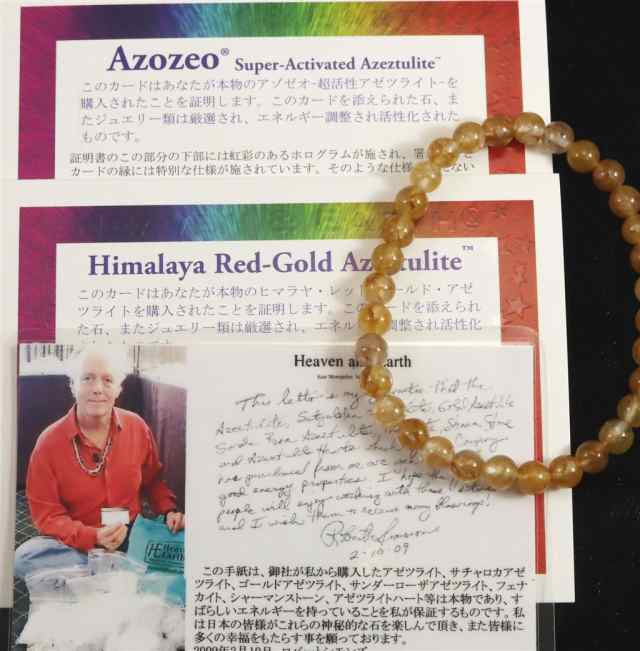 Azozeo® Super-Activated Azeztulite™
このカードはあなたが本物のアゾゼオ-超活性アゼツライト-を
購入されたことを証明します。このカードを添えられた石、ま
たジュエリー類は厳選され、エネルギー調整され活性化された
ものです。
証明書のこの部分の下部には虹彩のあるホログラムが施され、署
カードの縁には特別な仕様が施されています。そのような仕様 ない
Himalaya Red-Gold Azeztulite™
このカードはあなたが本物のヒマラヤ・レッド ールド・アゼ
ツライトを購入されたことを証明します。この ードを添えられ
た石、またジュエリー類は厳選され、エネル 調整され活性化
Heaven and Earth
This letter is my that the
Azeztulite, Satyaloka Gold Azeztulite
Sanda Rosa Azeztulite,
and Azeztulite Hearts
has purchased from me are
good energy properties. I hope the
people will enjoy working with these
and I wish them to receive many blessings!
Robert Simmons
2-10-09
この手紙は、御社が私から購入したアゼツライト、サチャロカアゼ
ツライト、ゴールドアゼツライト、サンダーローザアゼツライト、フェナ
カイト、シャーマンストーン、アゼツライトハート等は本物であり、す
ばらしいエネルギーを持っていることを私が保証するものです。私
は日本の皆様がこれらの神秘的な石を楽しんで頂き、また皆様に
多くの幸福をもたらす事を願っております。
2009年2月10日 ロバートシモンズ